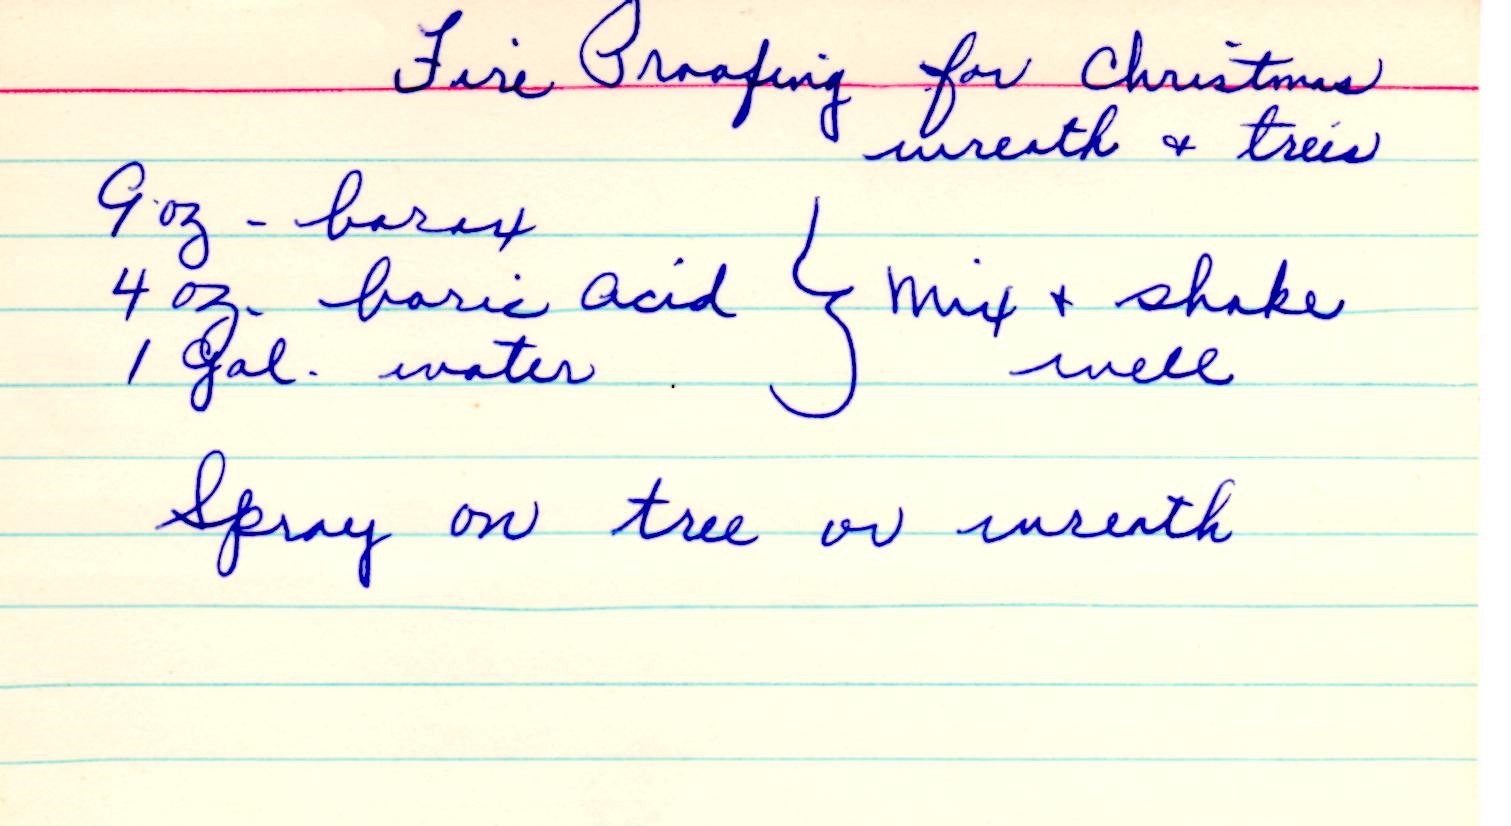 Fire Proofing for Christmas
wreath & trees
9 oz - borax
4 oz. boric acid } Mix + shake
1 Gal. water well
Spray on tree or wreath